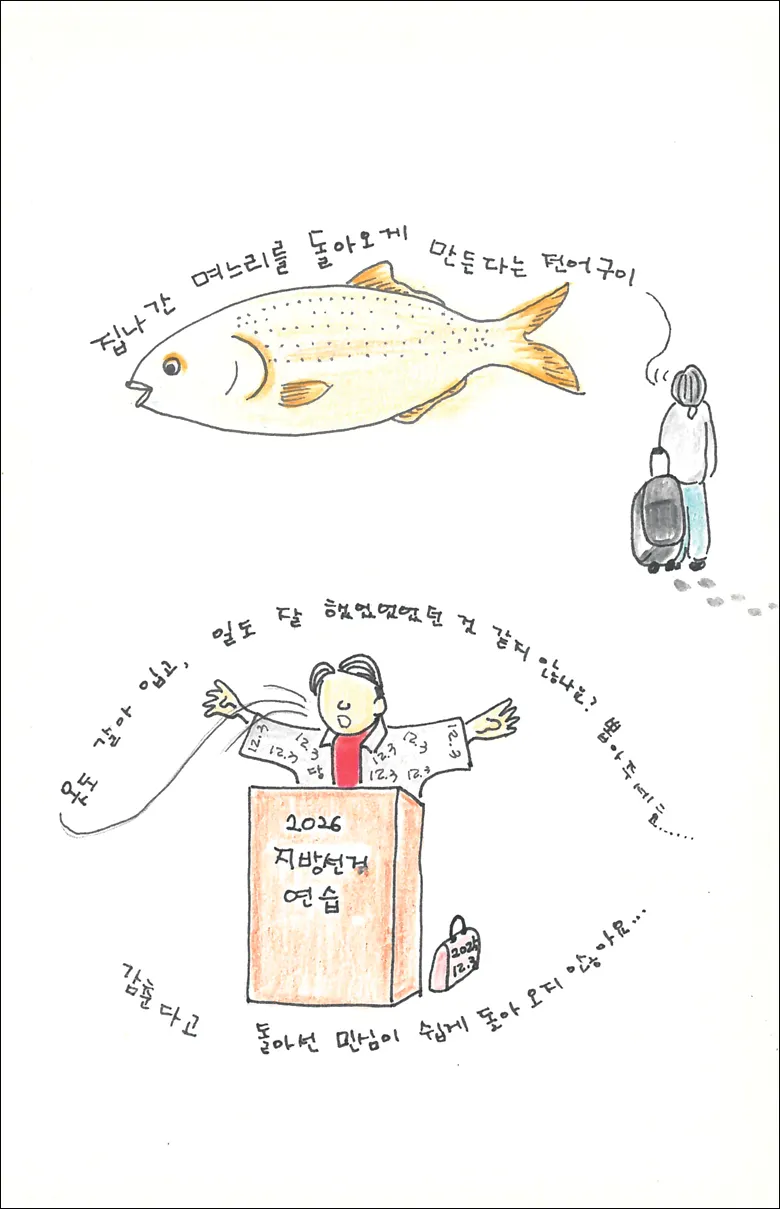 집나간 며느리를 돌아오게 만든다는 전어구이
옷도 갈아 입고, 일도 잘 했었었었던 것 같지 않나요? 뽑아주세요......
12.3
12.3
12.3
당
12.3
12.3
12.3
12.3
12.3
2026
지방선거
연습
2025
12.3
감춘다고 돌아선 민심이 쉽게 돌아 오지 않아요...